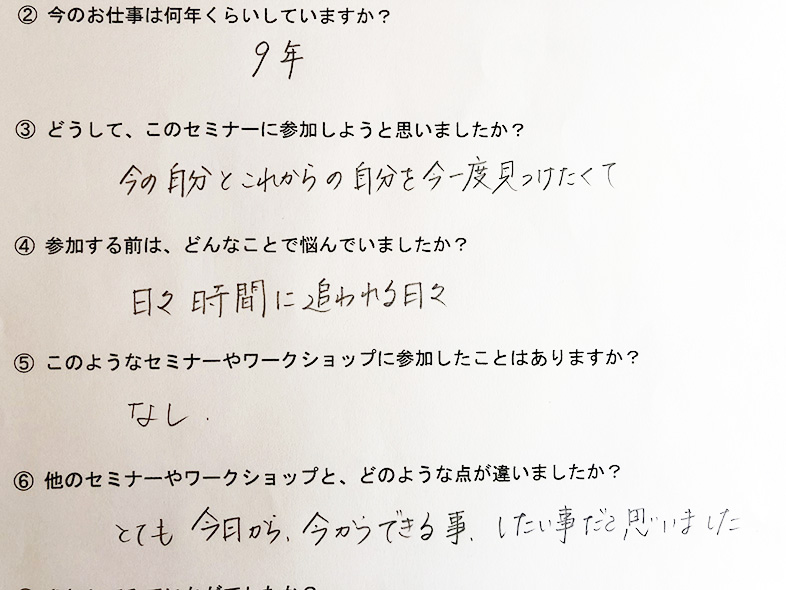 ② 今のお仕事は何年くらいしていますか？
9年
③ どうして、このセミナーに参加しようと思いましたか？
今の自分とこれからの自分を今一度見つけたくて
④ 参加する前は、どんなことで悩んでいましたか？
日々時間に追われる日々
⑤ このようなセミナーやワークショップに参加したことはありますか？
なし.
⑥ 他のセミナーやワークショップと、どのような点が違いましたか？
とても 今日から、今からできる事、したい事だと思いました